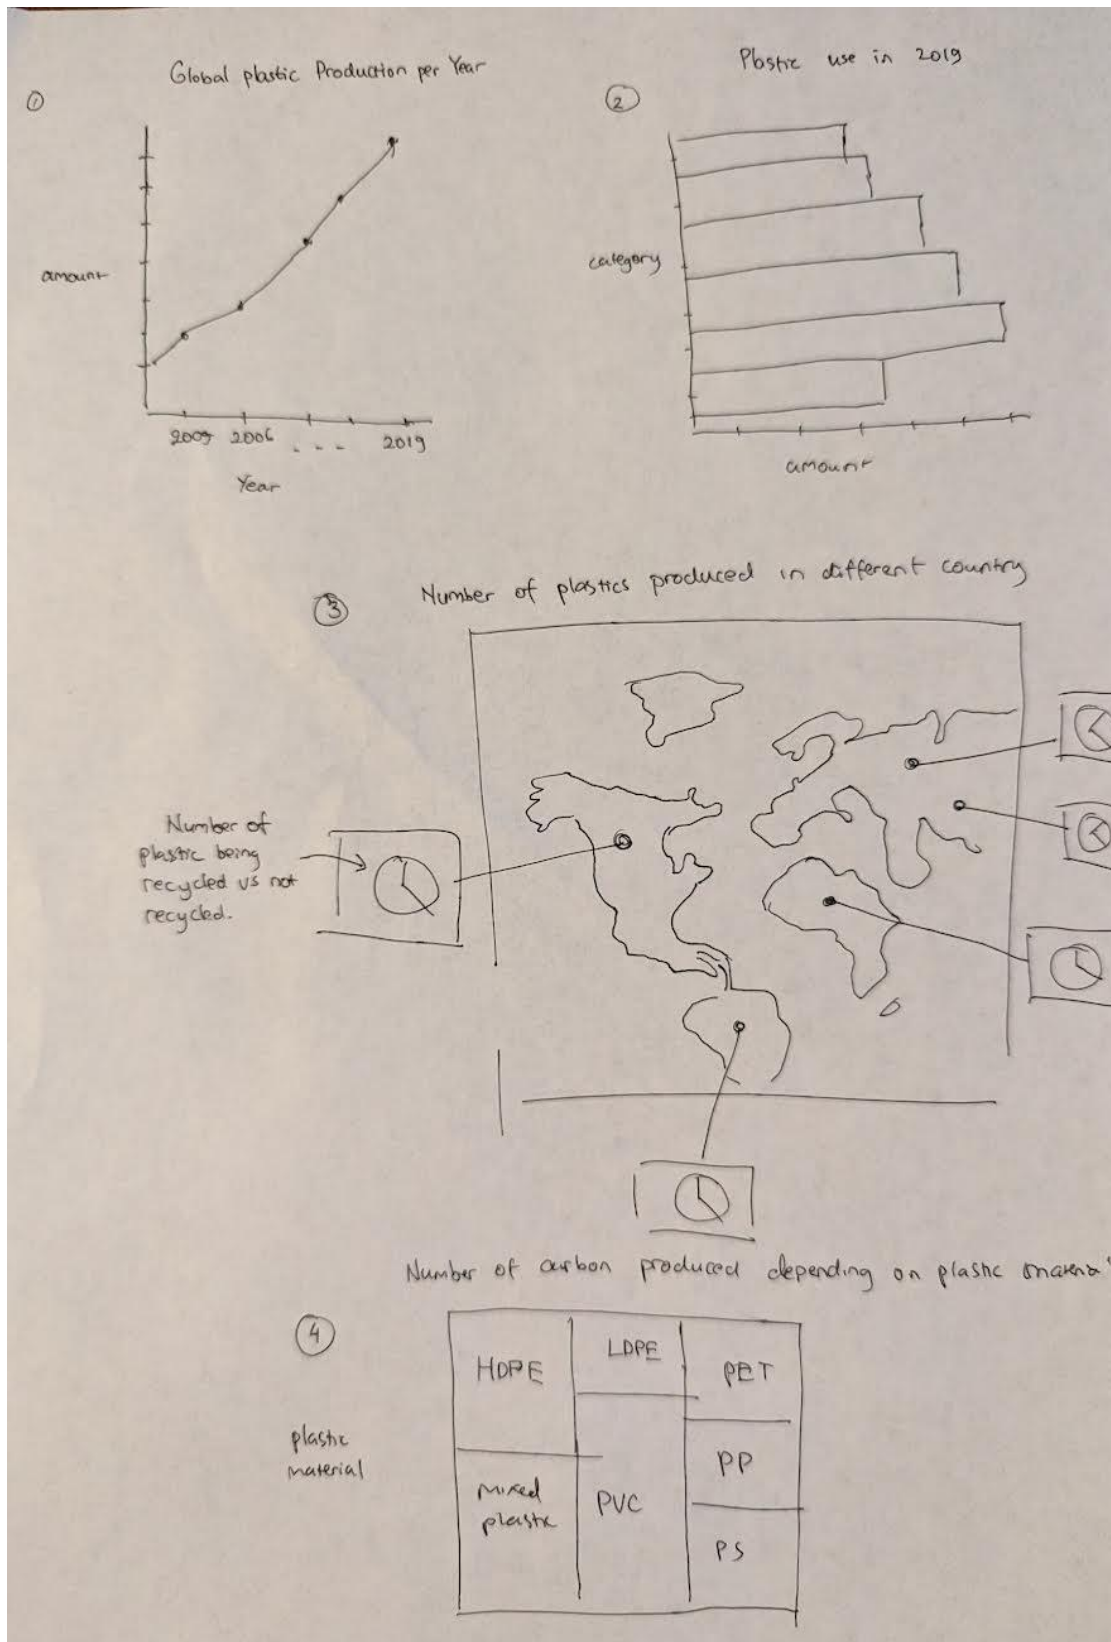 Global plastic Production per Year
①
amount
2006
. . .
2019
Year
Plastic use in 2019
②
category
amount
Number of plastics produced in different country
③
Number of
plastic being
recycled vs not
recycled.
Number of carbon produced depending on plastic
④
plastic
material
HDPE
LDPE
PET
mixed
plastic
PVC
PP
PS